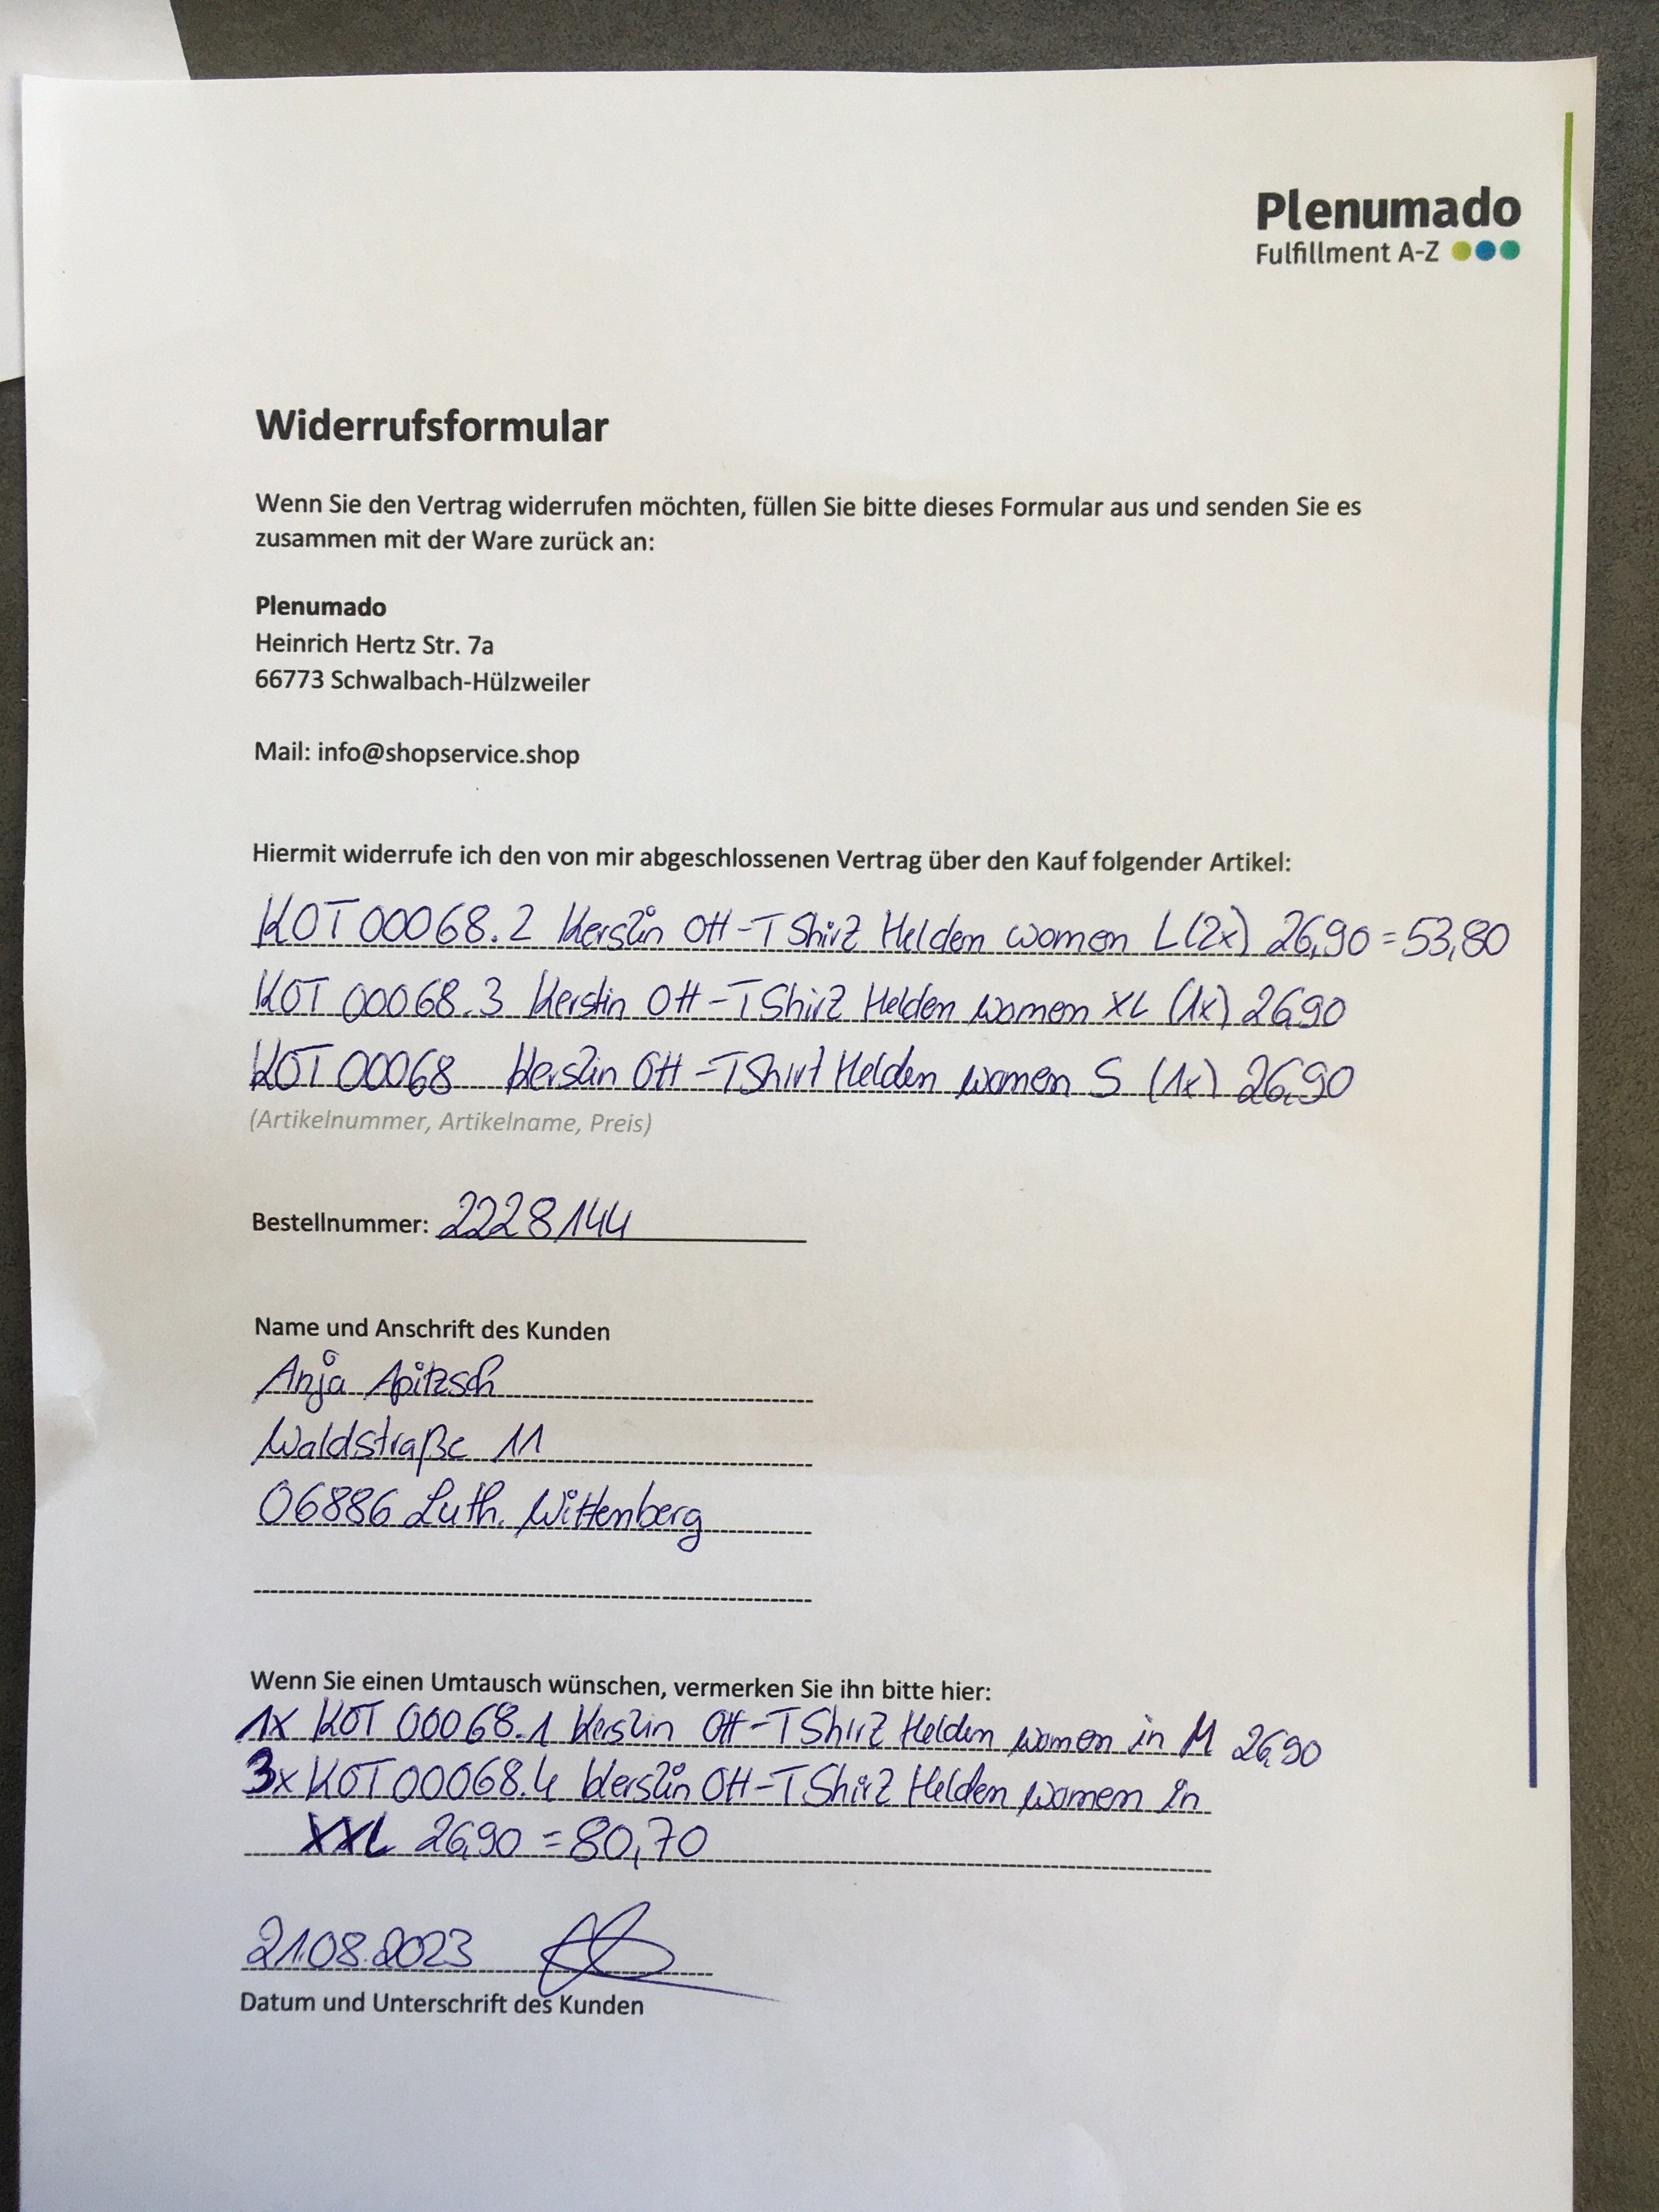 Plenumado
Fulfillment A-Z
Widerrufsformular
Wenn Sie den Vertrag widerrufen möchten, füllen Sie bitte dieses Formular aus und senden Sie es
zusammen mit der Ware zurück an:
Plenumado
Heinrich Hertz Str. 7a
66773 Schwalbach-Hülzweiler
Mail: info@shopservice.shop
Hiermit widerrufe ich den von mir abgeschlossenen Vertrag über den Kauf folgender Artikel:
KOT00068.2 Kerstin Ott-TShirt Helden women L(2x) 26,90 = 53,80
KOT 00068.3 Kerstin Ott-TShirt Helden women XL (1x) 26,90
KOT00068 Kerstin Ott-TShirt Helden women S (1x) 26,90
(Artikelnummer, Artikelname, Preis)
Bestellnummer: 2228144
Name und Anschrift des Kunden
Anja Apitzsch
Waldstraße 11
06886 Luth. Wittenberg
Wenn Sie einen Umtausch wünschen, vermerken Sie ihn bitte hier:
1x KOT 00068.1 Kerstin Ott-TShirt Helden women in M 26,90
3x KOT00068.4 Kerstin Ott-TShirt Helden women in
XXL 26,90 = 80,70
21.08.2023
Datum und Unterschrift des Kunden